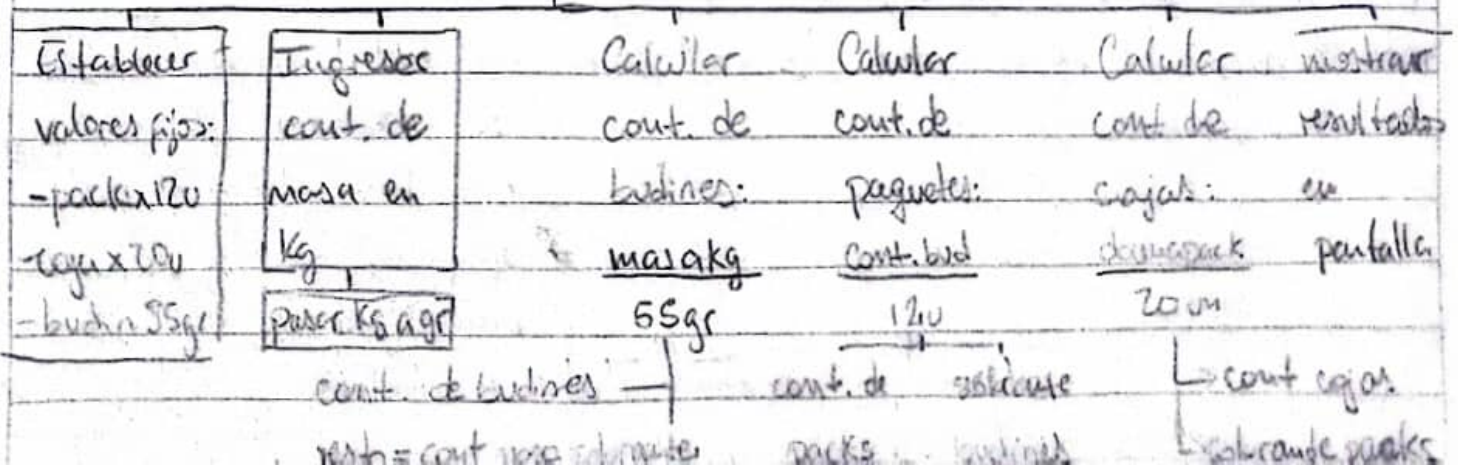 Establecer
valores fijos:
-packx12u
-caja x 20u
-budin 55gr
Ingresar
cant. de
masa en
Kg
pasar kg a gr
Calcular
cant. de
budines:
masakg
55gr
cant. de budines
resto = cant masa sobrante
Calcular
cant. de
paquetes:
cant. bud
12u
cant. de sobrante
packs budines
Calcular
cant de
cajas:
20 un
cant cajas
sobrante packs
mostrar
resultados
en
pantalla